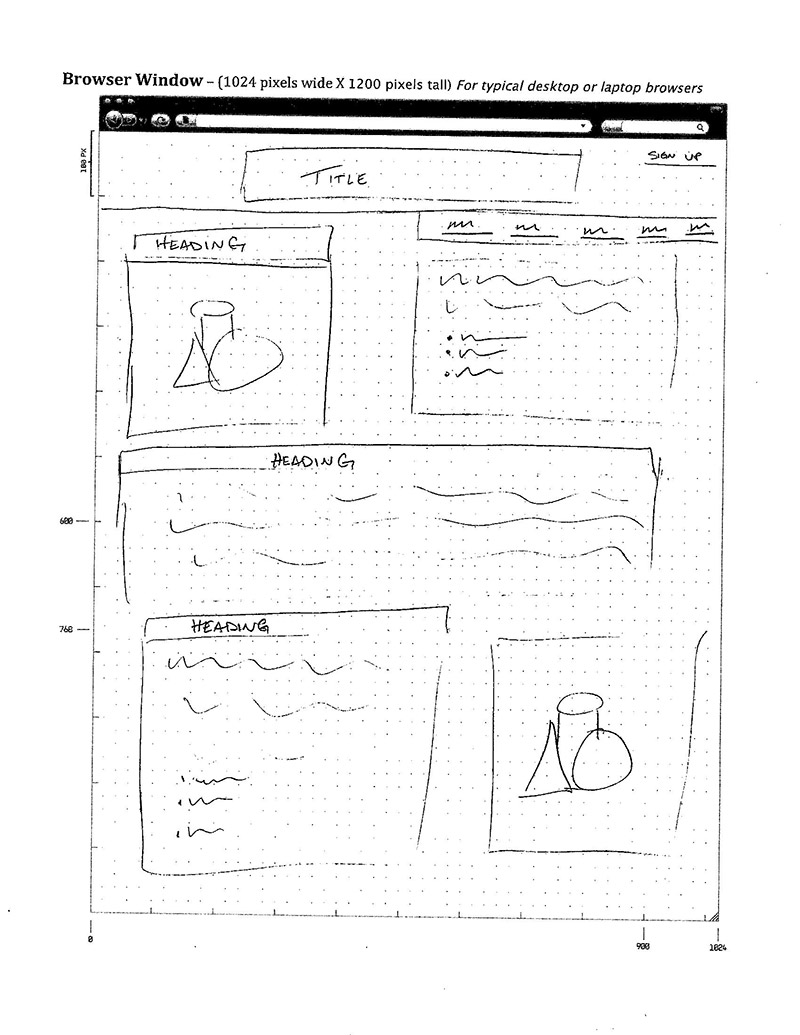 Browser Window – (1024 pixels wide X 1200 pixels tall) For typical desktop or laptop browsers
100 PX
SIGN UP
TITLE
HEADING
HEADING
600
768
HEADING
0
900
1024